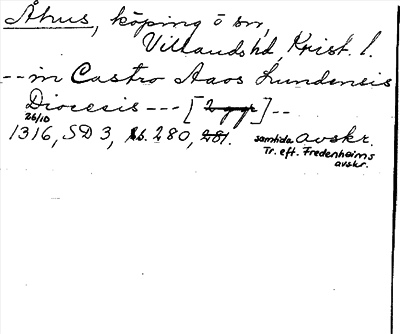 Åhus, köping o sn,
Villands hd, Krist. l.
-- in Castro Aaos Lundensis
Diocesis --- [2 ggr] --
26/10
1316, SD 3, s. 280, 281. samtida avskr.
Tr. eft. Fredenheims
avskr.